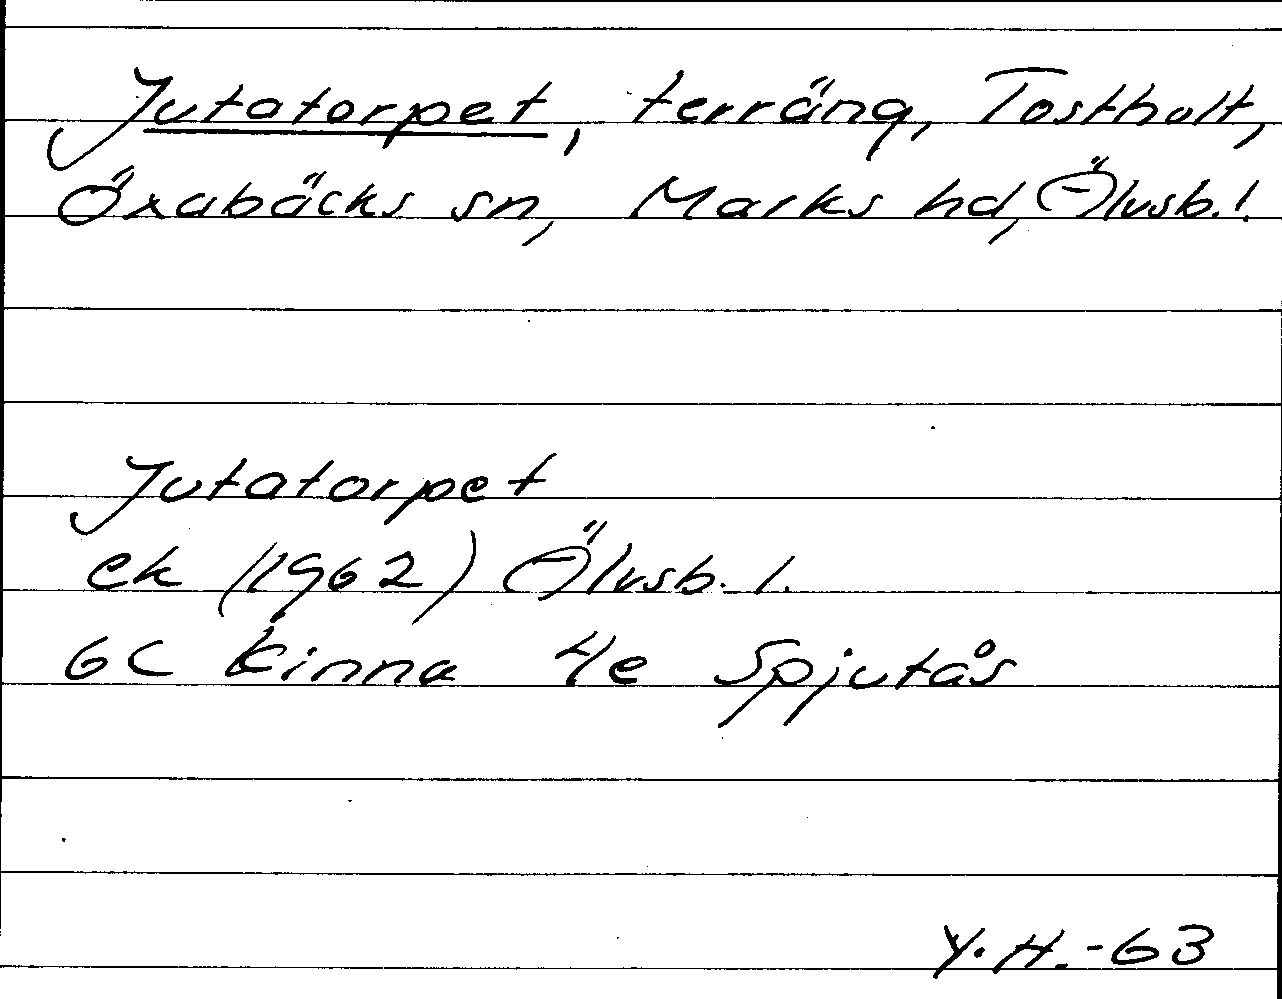 Jutatorpet, terräng, Tostholt,
Öxabäcks sn, Marks hd, Älvsb. l.
Jutatorpet
ek (1962) Älvsb. l.
6C Kinna 4e Spjutås
Y.H.-63